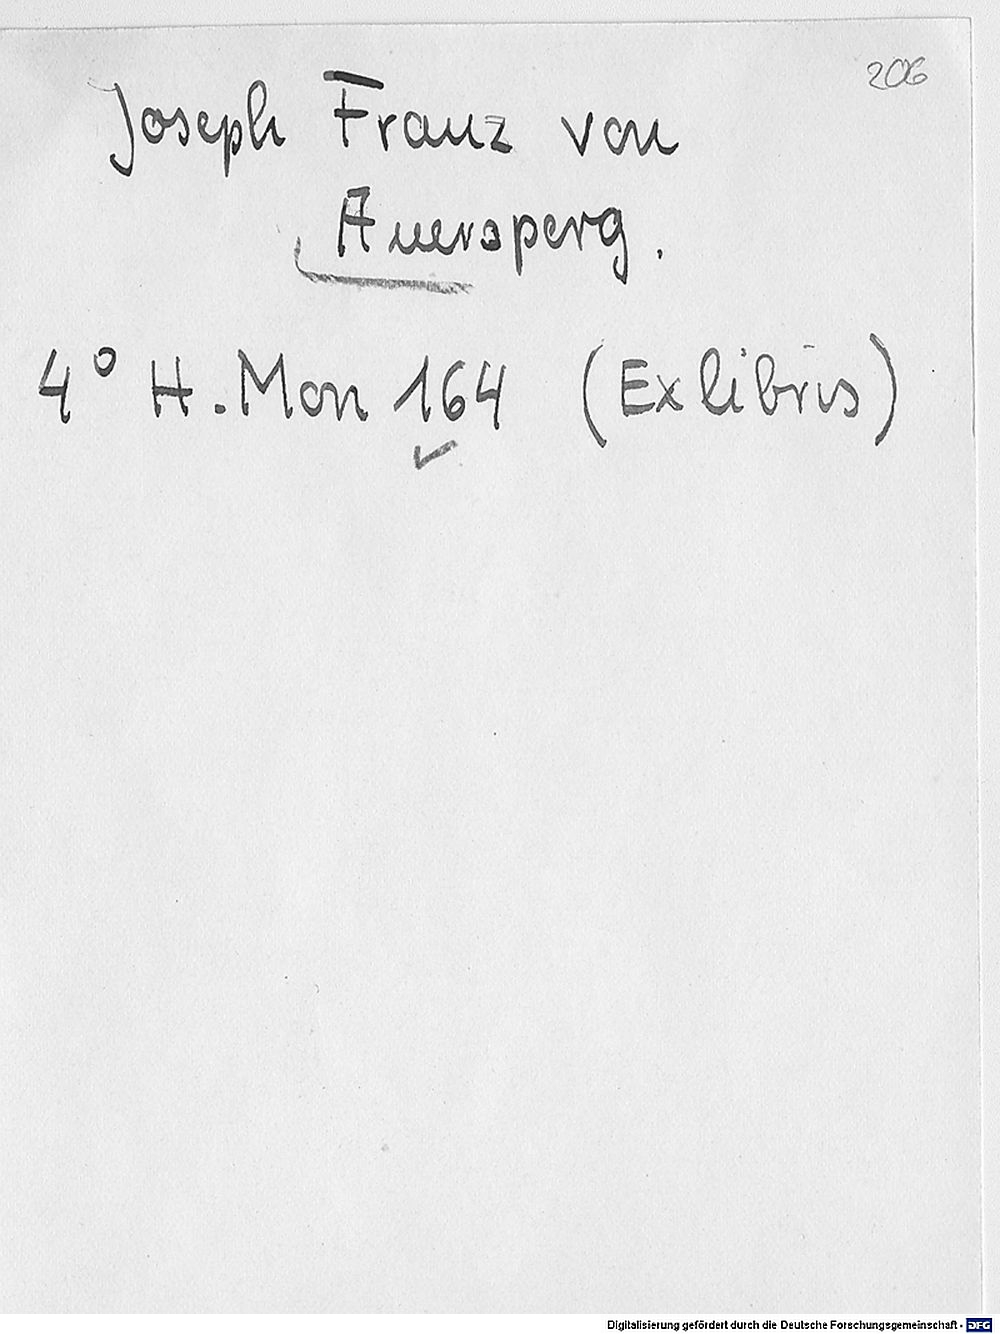 206
Joseph Franz von
Auersperg.
4° H. Mon 164 (Exlibris)
Digitalisierung gefördert durch die Deutsche Forschungsgemeinschaft - DFG